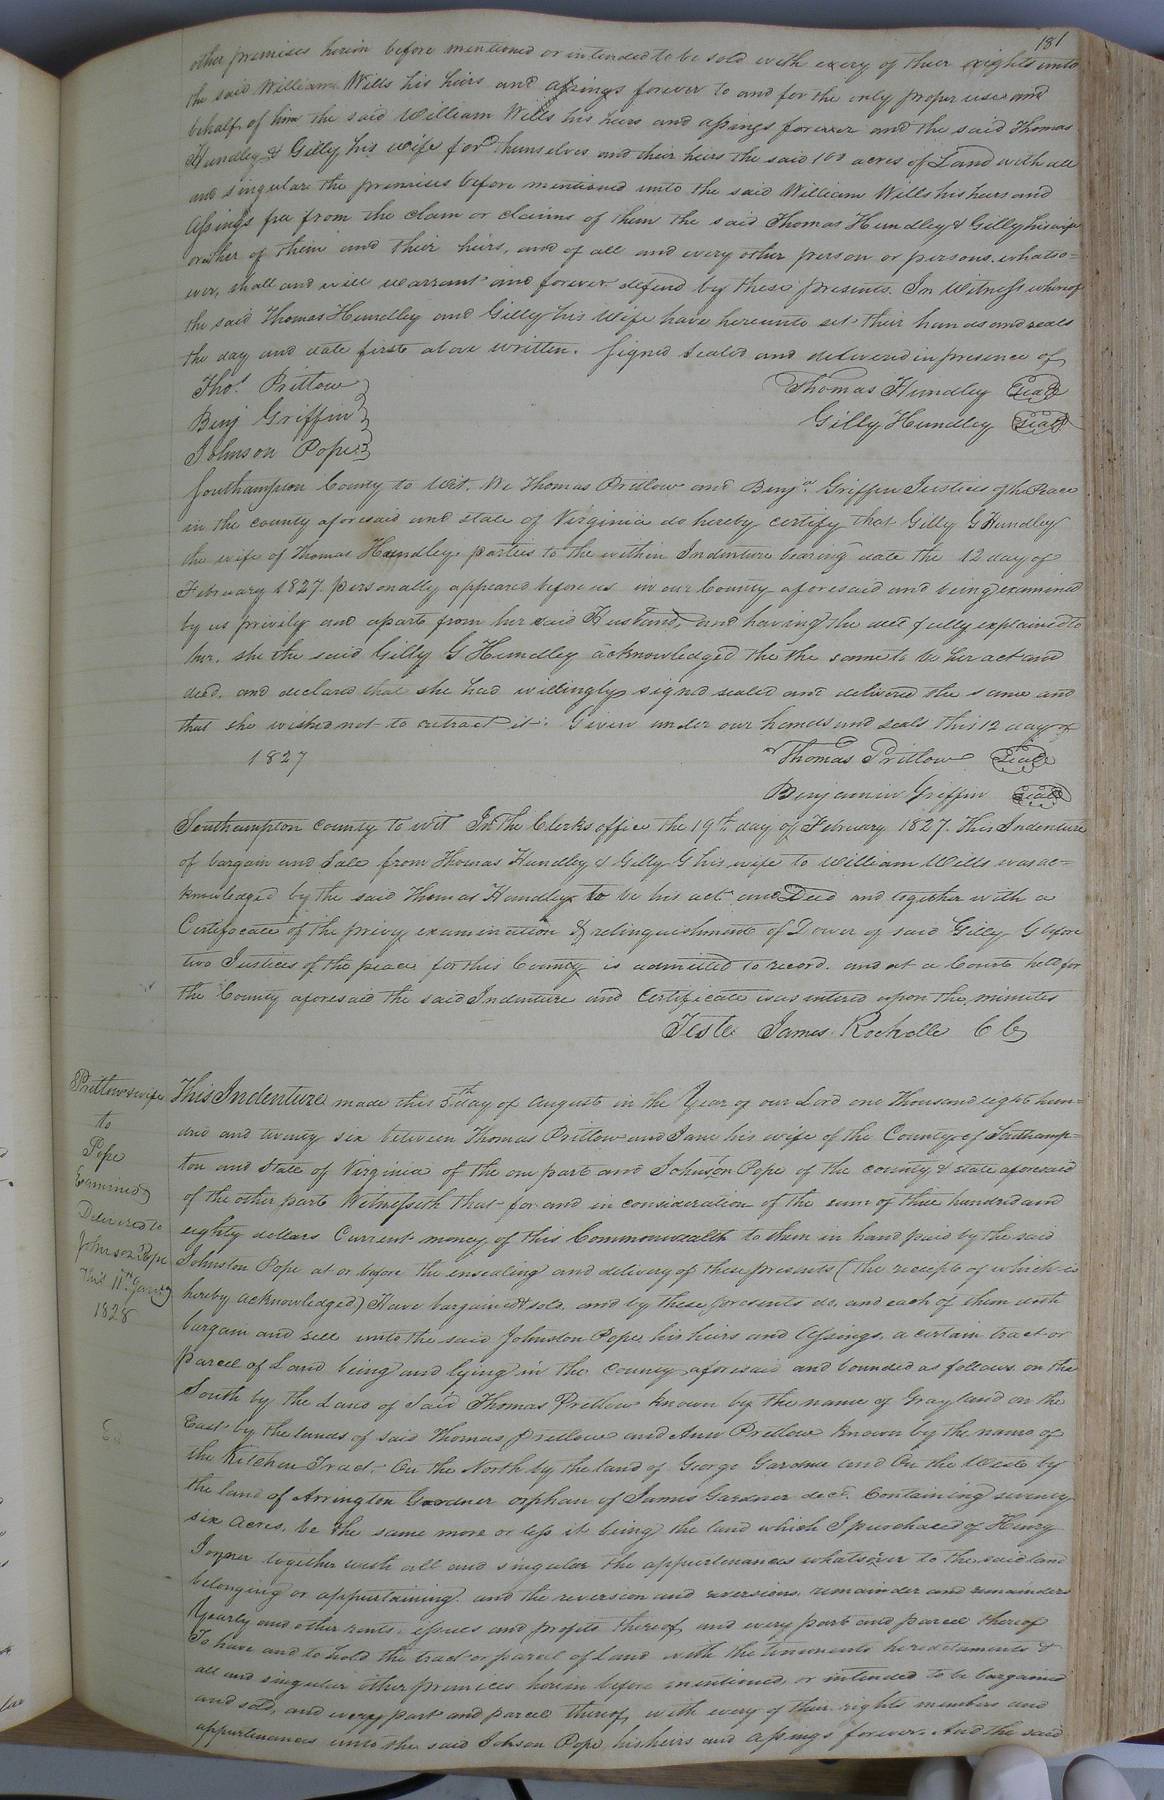 181
other premises herein before mentioned or intended to be sold with every of their rights unto
the said William Wills his heirs and assings forever to and for the only proper use and
behalf of him the said William Wills his heirs and assings forever and the said Thomas
Hundley & Gilly his wife for themselves and their heirs the said 100 acres of Land with all
and singular the premises before mentioned unto the said William Wills his heirs and
assings free from the claim or claims of them the said Thomas Hundley & Gilly his wife
or other of them and their heirs, and of all and every other person or persons whatso=
ever, shall and will warrant and forever defend by these presents. In Witness whereof
the said Thomas Hundley and Gilly his Wife have hereunto set their hands and seals
the day and date first above written. Signed Sealed and delivered in presence of
Thos. Pretlow Thomas Hundley Seal
Benj Griffin Gilly Hundley Seal
Johnson Pope
Southampton County to Wit. We Thomas Pretlow and Benjn. Griffin Justices of the Peace
in the county aforesaid and state of Virginia do hereby certify that Gilly G Hundley
the wife of Thomas Hundley parties to the within Indenture bearing date the 12 day of
February 1827 personally appeared before us in our County aforesaid and being examined
by us privily and apart from her said Husband, and having the deed fully explained to
her. she the said Gilly G Hundley acknowledged the the same to be her act and
deed, and declared that she had willingly signed sealed and delivered the same and
that she wished not to retract it. Given under our hands and seals this 12 day of
1827 Thomas Pretlow Seal
Benjamin Griffin Seal
Southampton county to wit In the Clerks office the 19th day of February 1827. This Indenture
of bargain and Sale from Thomas Hundley & Gilly G his wife to William Wills was ac=
knowledged by the said Thomas Hundley to be his act and Deed and together with a
Certificate of the privy examination & relinquishment of Dower of said Gilly G before
two Justices of the peace for this County is admitted to record. and at a Court held for
the County aforesaid the said Indenture and Certificate was entered upon the minutes
Teste James Rochelle C C
Pretlow & wife
to
Pope
Examined
Delivered to
Johnson Pope
this 11th Jany
1828
Ex
This Indenture made this 5th day of August in the Year of our Lord one Thousand eight hun=
dred and twenty six between Thomas Pretlow and Jane his wife of the County of Southamp=
ton and State of Virginia of the one part and Johnson Pope of the county & state aforesaid
of the other part Witnesseth that for and in consideration of the sum of three hundred and
eighty dollars Current money of this Commonwealth to them in hand paid by the said
Johnston Pope at or before the ensealing and delivery of these presents (the receipt of which is
hereby acknowledged) Have bargained & sold, and by these presents do, and each of them doth
bargain and sell unto the said Johnston Pope, his heirs and assings, a certain tract or
parcel of Land being and lying in the County aforesaid and bounded as follows on the
South by the Land of Said Thomas Pretlow known by the name of Grayland on the
East by the lands of said Thomas Pretlow and Ann Pretlow known by the name of
the Kitchen Tract. On the North by the land of George Gardner and On the West by
the land of Arrington Gardner orphan of James Gardner decd. Containing seventy
six Acres, be the same more or less it being the land which I purchased of Henry
Joyner together with all and singular the appurtenances whatsoever to the said land
belonging or appertaining. and the reversion and reversions, remainder and remainders
Yearly and other rents, issues and profits thereof, and every part and parcel thereof
To have and to hold the tract or parcel of Land with the tenements heredetaments &
all and singular other premises herein before mentioned, or intended to be bargained
and sold, and every part and parcel thereof, with every of their rights members and
appurtenances unto the said Johson Pope, his heirs and assings forever. And the said